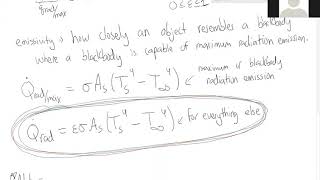 Q̇rad/max 0≤ε≤1
emissivity is how closely an object resembles a blackbody
where a blackbody is capable of maximum radiation emission.
Q̇rad/max = σAs(Ts⁴ - T∞⁴) ← maximum or blackbody
radiation emission
Q̇rad = εσAs(Ts⁴ - T∞⁴) ← for everything else